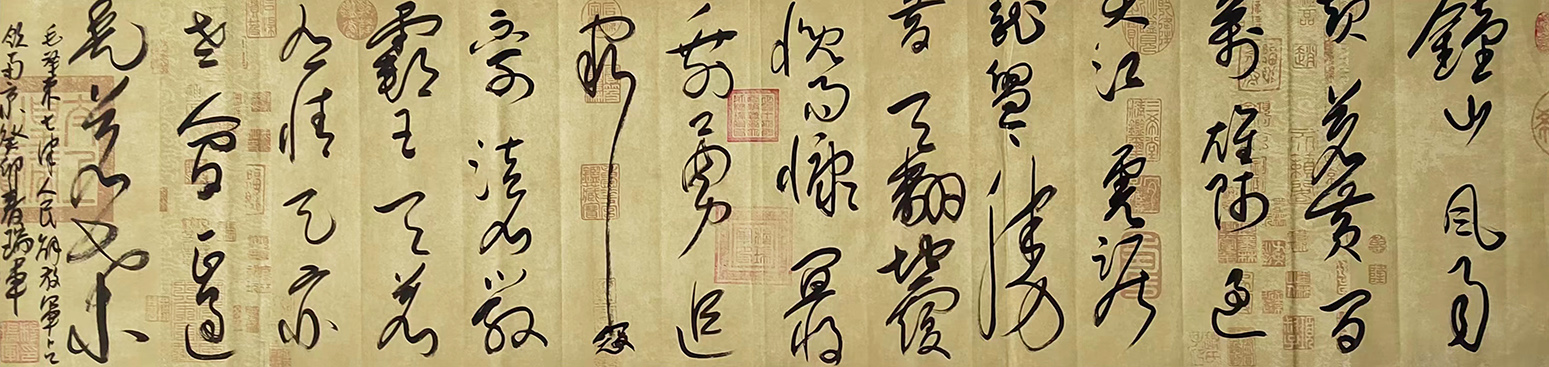 鐘山風雨
起蒼黄百
萬雄师過
大江虎踞
龍盤今勝
昔天翻地覆
慨而慷宜将
剩勇追
窮寇
不可沽名學
霸王天若
有情天亦
老人間正道
是滄桑
毛澤東七律人民解放軍占
領南京癸卯春瑞軍